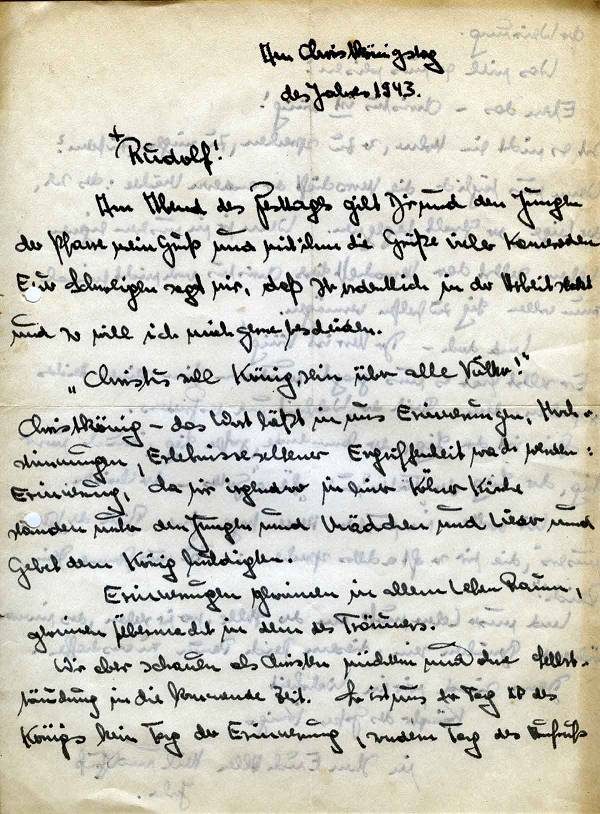 Am Christkönigstag
des Jahres 1943.
+
Rudolf!
Am Abend des Festtages gilt Dir und den Jungen
der Pfarre mein Gruß und mit ihm die Grüße vieler Kameraden
Euer Schweigen sagt mir, daß Ihr ordentlich in der Arbeit steckt
und so will ich mich gerne bescheiden.
„Christus soll König sein über alle Völker!"
Christkönig – das Wort läßt in uns Erinnerungen, Hoch-
stimmungen, Erlebnisse seltener Ergriffenheit wach werden:
Erinnerung, da wir irgendwo in einer Kölner Kirche
standen unter den Jungen und Mädchen und Lieder und
Gebet dem König huldigten.
Erinnerungen gewinnen in allem Leben Raum,
gewinnen Übermacht in dem des Träumers.
Wir aber schauen als Christen nüchtern und ohne Selbst-
täuschung in die kommende Zeit. So ist uns der Tag des
Königs kein Tag der Erinnerung, sondern Tag des Aufrufs